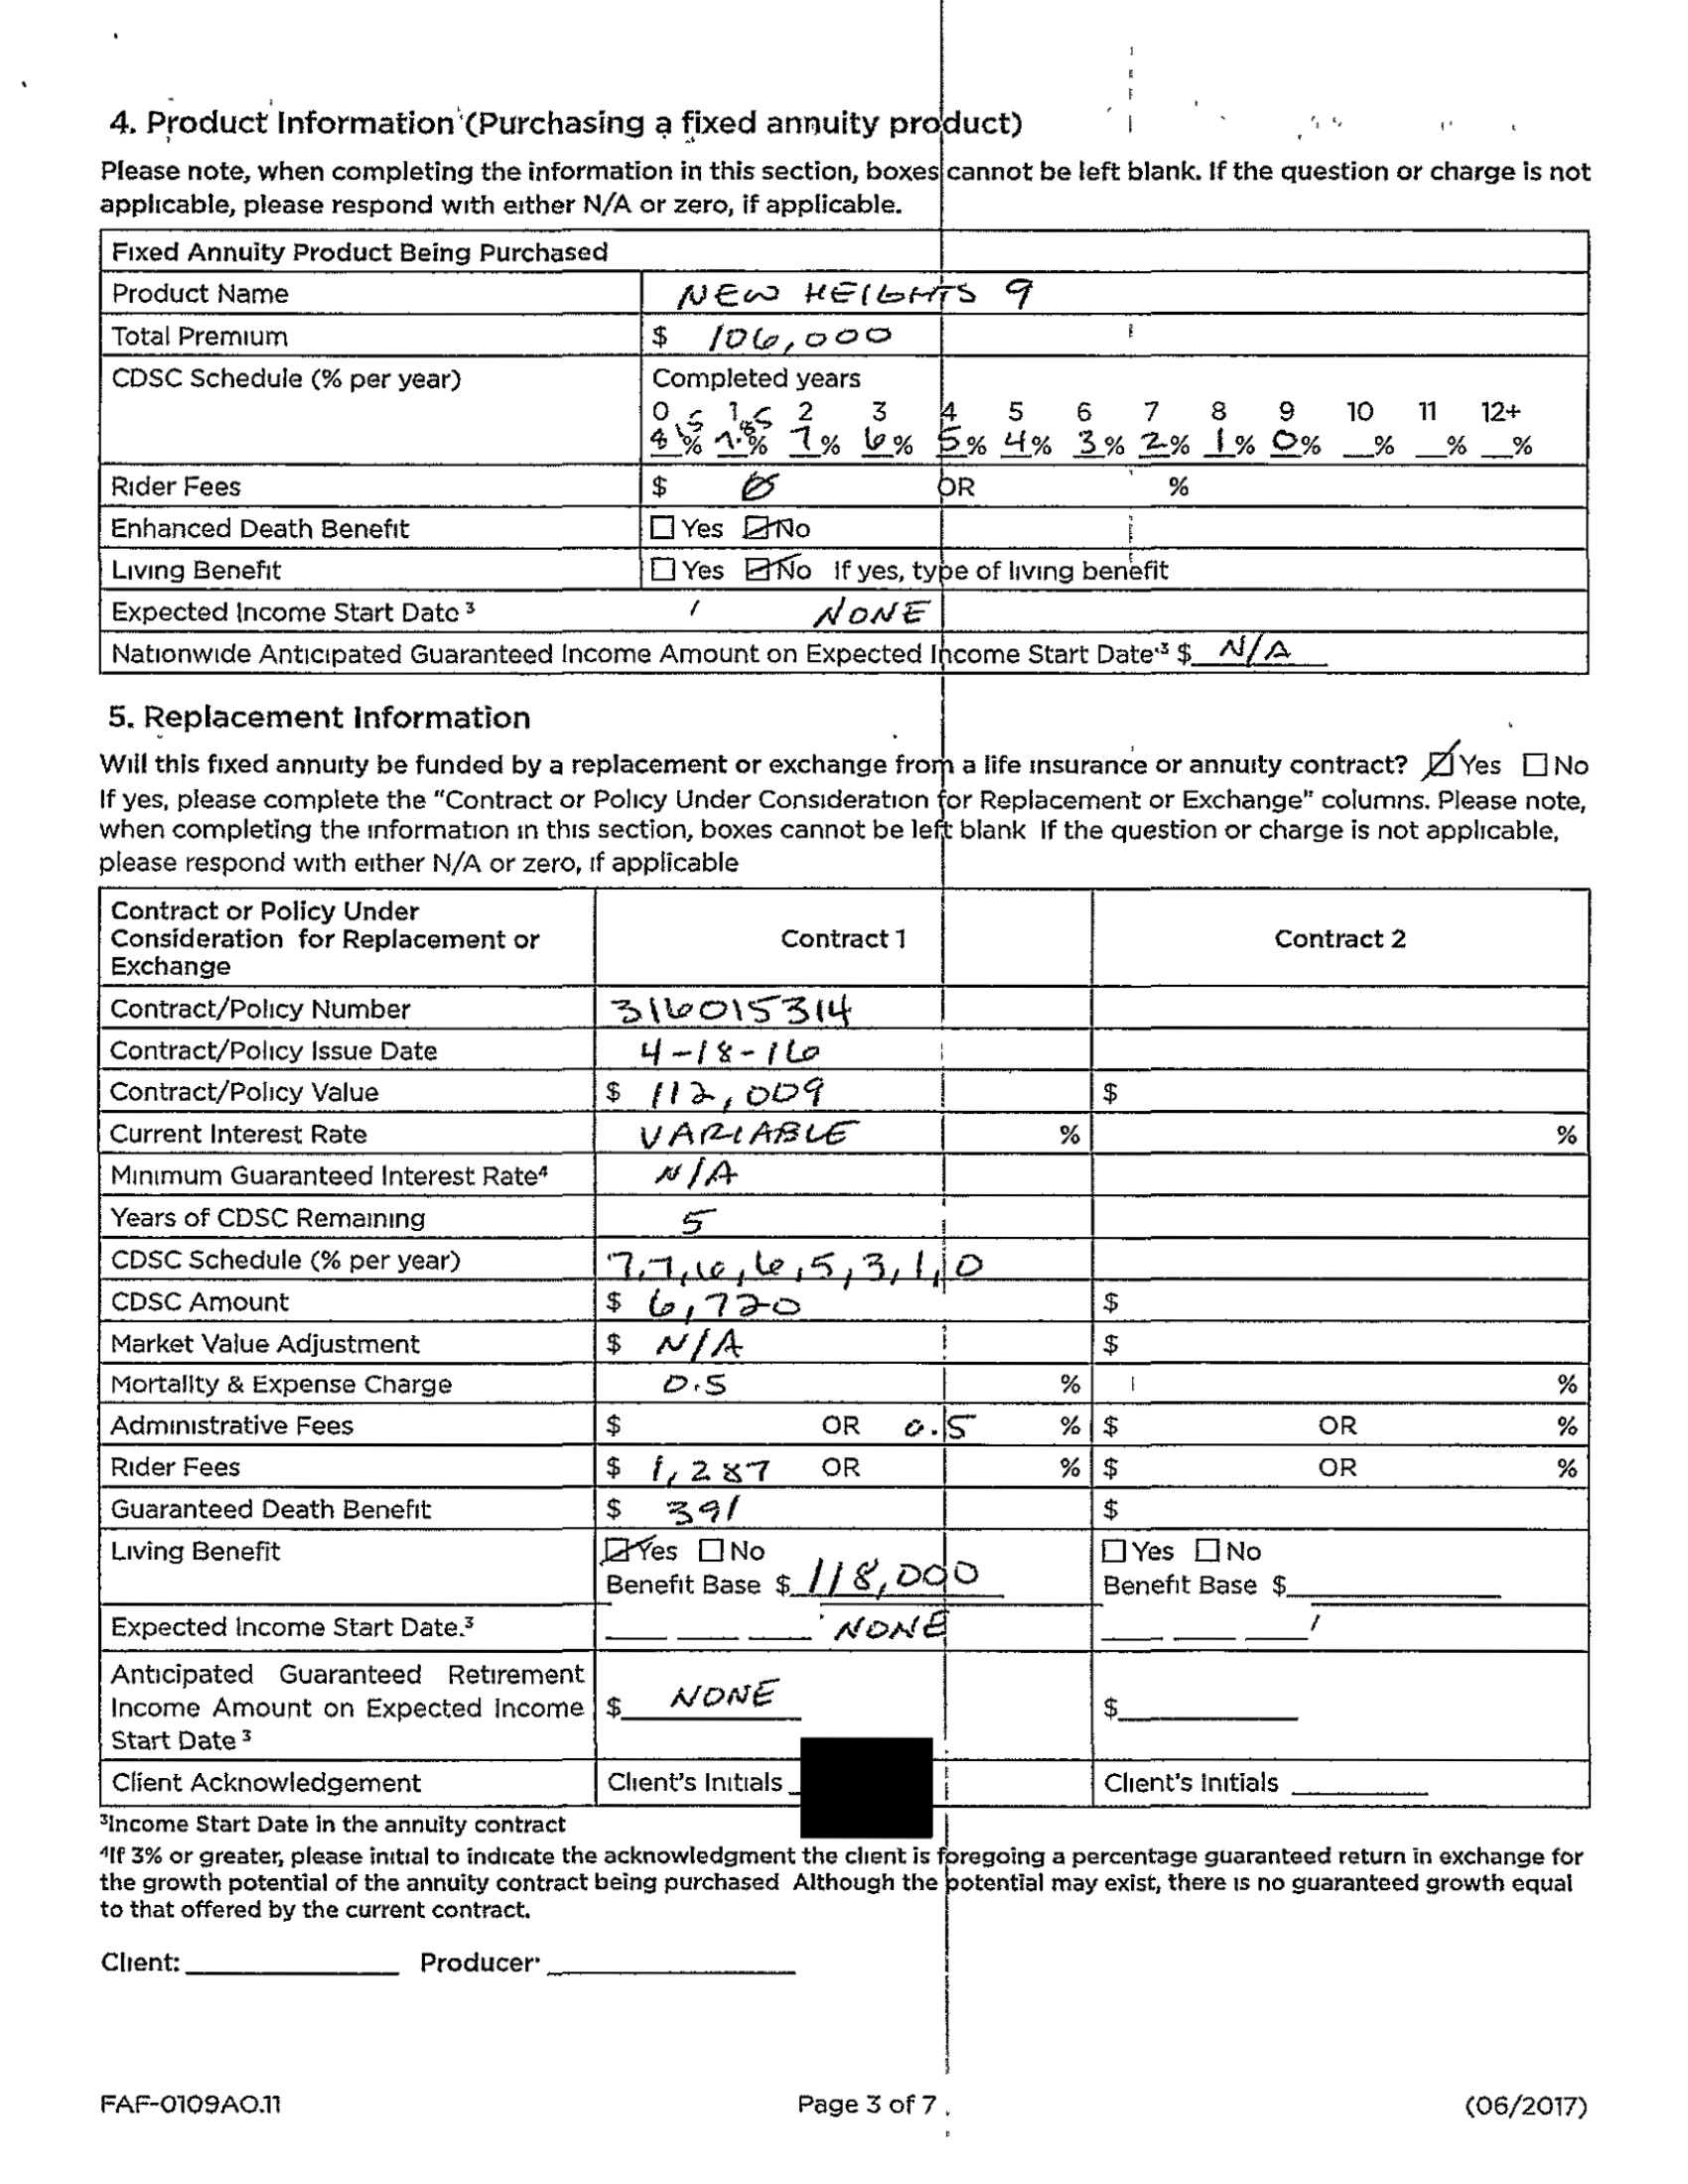 4. Product Information (Purchasing a fixed annuity product)
Please note, when completing the information in this section, boxes cannot be left blank. If the question or charge is not
applicable, please respond with either N/A or zero, if applicable.
Fixed Annuity Product Being Purchased
Product Name NEW HEIGHTS 9
Total Premium $ 106,000
CDSC Schedule (% per year) Completed years
0 1 2 3 4 5 6 7 8 9 10 11 12+
% % 7% 6% 5% 4% 3% 2% 1% 0% % % %
Rider Fees $ OR %
Enhanced Death Benefit ☐ Yes ☑ No
Living Benefit ☐ Yes ☑ No If yes, type of living benefit
Expected Income Start Date 3 NONE
Nationwide Anticipated Guaranteed Income Amount on Expected Income Start Date 3 $ N/A
5. Replacement Information
Will this fixed annuity be funded by a replacement or exchange from a life insurance or annuity contract? ☑ Yes ☐ No
If yes, please complete the "Contract or Policy Under Consideration for Replacement or Exchange" columns. Please note,
when completing the information in this section, boxes cannot be left blank If the question or charge is not applicable,
please respond with either N/A or zero, if applicable
Contract or Policy Under
Consideration for Replacement or Contract 1 Contract 2
Exchange
Contract/Policy Number 316015314
Contract/Policy Issue Date 4-18-16
Contract/Policy Value $ 112,009 $
Current Interest Rate VARIABLE % %
Minimum Guaranteed Interest Rate4 N/A
Years of CDSC Remaining 5
CDSC Schedule (% per year) 7,7,6,6,5,3,1,0
CDSC Amount $ 6,720 $
Market Value Adjustment $ N/A $
Mortality & Expense Charge 0.5 % %
Administrative Fees $ OR 0.5 % $ OR %
Rider Fees $ 1,287 OR % $ OR %
Guaranteed Death Benefit $ 391 $
Living Benefit ☑ Yes ☐ No ☐ Yes ☐ No
Benefit Base $ 118,000 Benefit Base $
Expected Income Start Date.3 NONE
Anticipated Guaranteed Retirement
Income Amount on Expected Income $ NONE $
Start Date 3
Client Acknowledgement Client's Initials Client's Initials
3Income Start Date in the annuity contract
4If 3% or greater, please initial to indicate the acknowledgment the client is foregoing a percentage guaranteed return in exchange for
the growth potential of the annuity contract being purchased Although the potential may exist, there is no guaranteed growth equal
to that offered by the current contract.
Client: Producer
FAF-0109AO.11 Page 3 of 7 (06/2017)